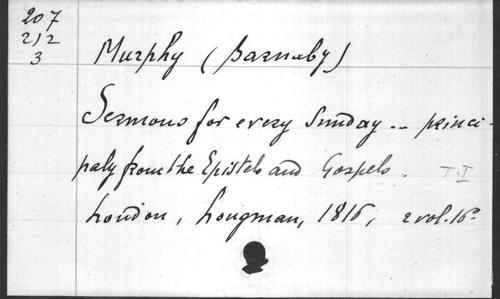 207
212
3
Murphy (Barnaby)
Sermons for every Sunday -- princi-
paly from the Epistels and Gospels. T.I
London, Longman, 1816, 2 vol. 16º